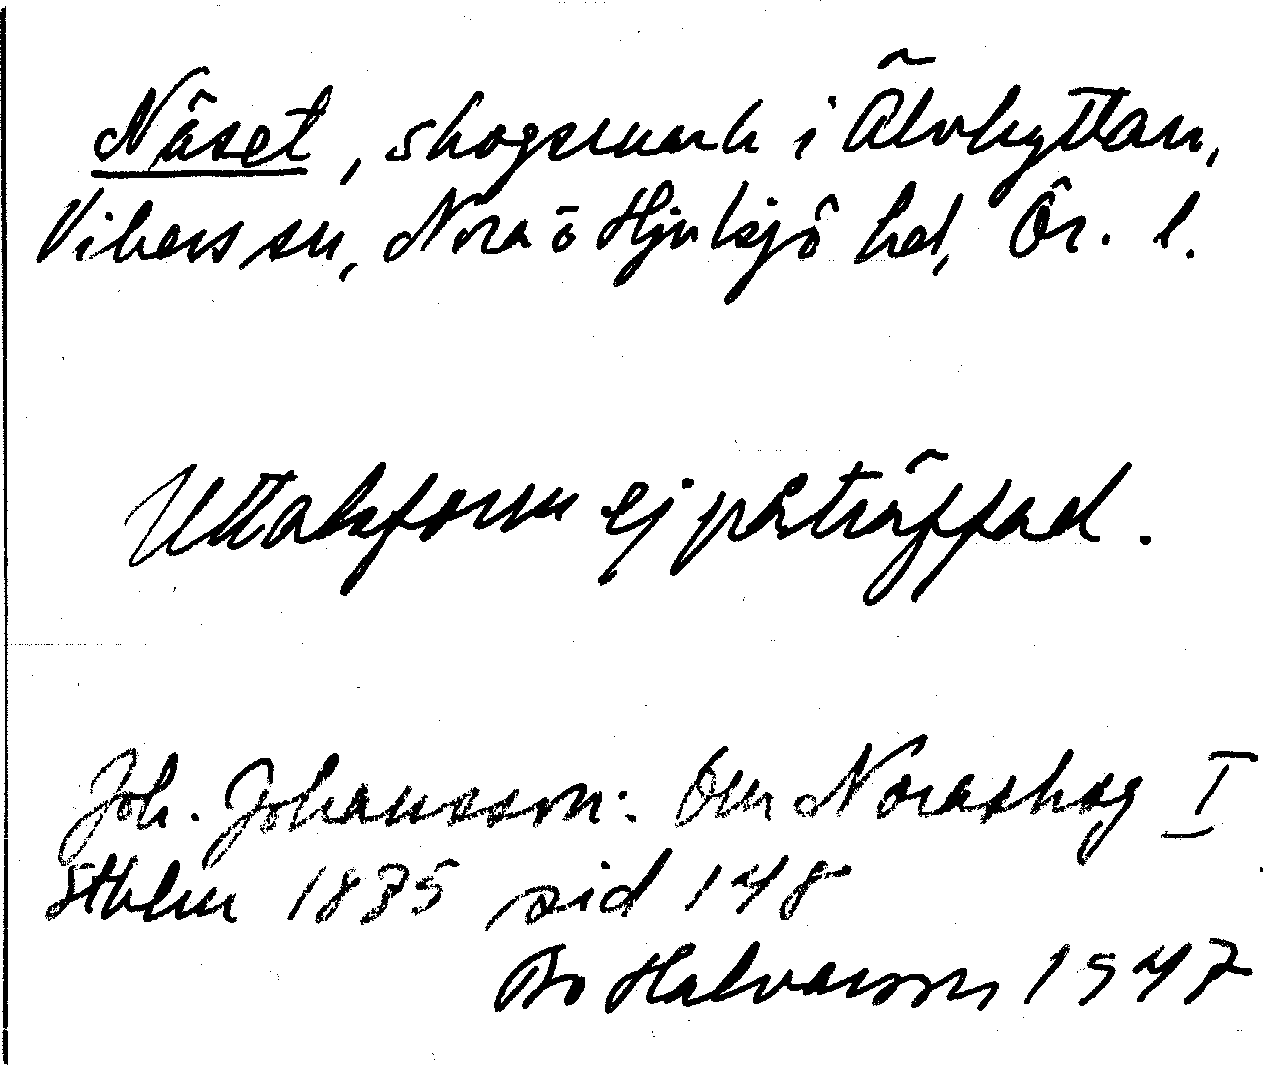 Näset, skogsmark i Älvhyttan,
Vikers sn, Nora ō Hjulsjö hd, Ör. l.
Uttalsform ej påträffad.
Joh. Johansson: Om Noraskog I
Sthlm 1875 sid 148
Bo Halvarson 1947